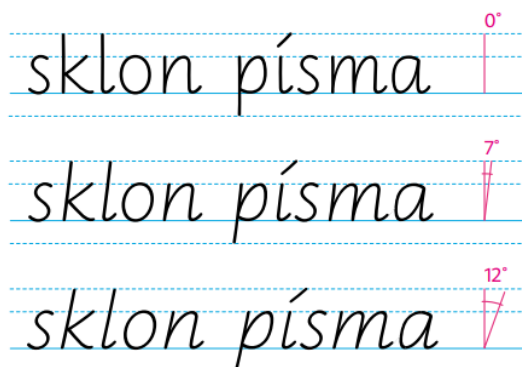 sklon písma 0°
sklon písma 7°
sklon písma 12°